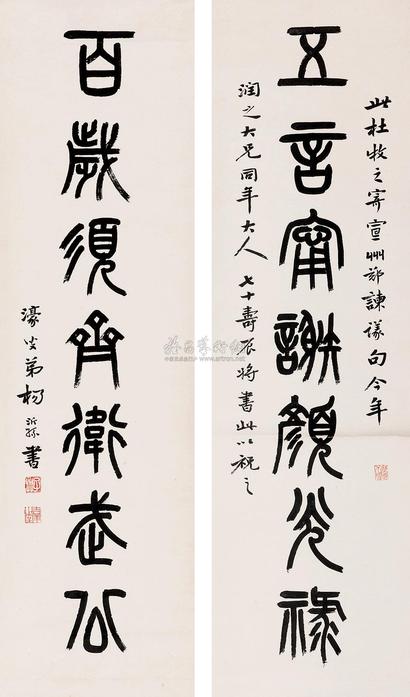 此杜牧之寄宣州郑諫議句今年
五言甯謝顔光祿
潤之大兄同年大人七十壽辰将書此以祝之
百歲須齊衛武公
濠叟弟楊沂孫書